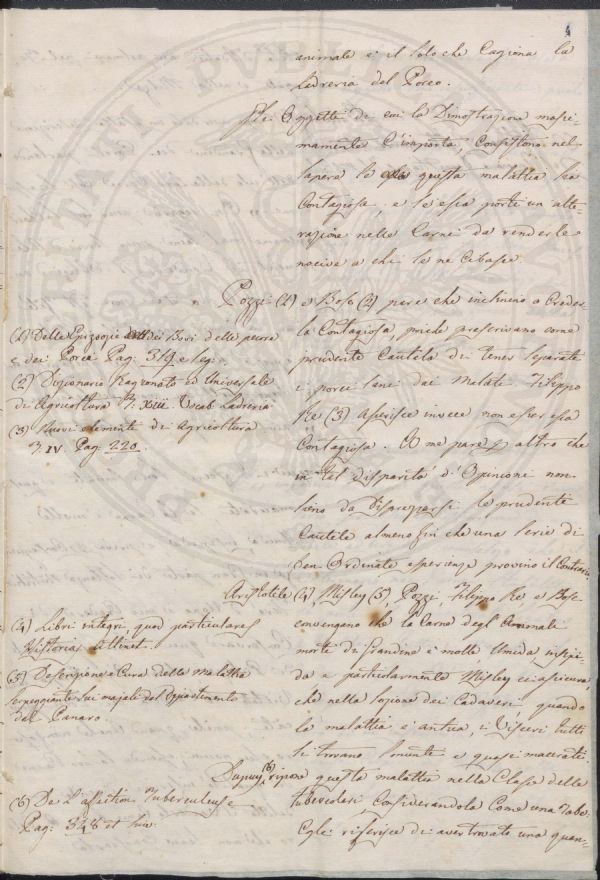 4
animale è il solo che Cagiona la
Ladreria del Porco.
Gli Oggetti di cui la Dimostrazione massi-
mamente c'importa Consistono nel
sapere se questa malattia sia
Contagiosa, e se essa porti un alte-
razione nelle Carni da renderle
nocive a chi se ne Cibasse.
Pozzi (1) e Bosc (2) pare che inclinino a Creder-
la Contagiosa, poichè prescrivano come
prudente Cautela di tener separati
i porci sani dai Malati. Filippo
Re (3) asserisce invece non esser essa
Contagiosa. A me pare altro che
in tal disparità d'Opinioni non
sieno da disprezzarsi le prudenti
Cautele almeno fin che una serie di
ben Ordinate esperienze provino il Contrario
Aristotile (4), Misley (5), Pozzi, Filippo Re e Bosc
convengano che la Carne degl Animali
morti di Grandine è molto Umida insipi-
da e particolarmente Misley ci assicura,
che nella sezione dei Cadaveri quando
la malattia è antica, i Visceri tutti
si trovano smunti e quasi macerati.
Dupuy (6) ripone questa malattia nella Classe delle
tubercolari, Considerandola Come una Tabe.
Egli riferisce di aver trovato una quan-
(1) Delle Epizoozie dei Bovi delle pecore
e dei Porci Pag: 319 e seg.
(2) Dizionario Ragionato ed Universale
di Agricoltura T: XIII. Vocab Ladreria
(3) Nuovi elementi di Agricoltura
T. IV. Pag: 220.
(4) Libri integri quod particulares
Historias attinet.
(5) Descrizione e Cura della Malattia
serpeggiante sui majali del Dipartimento
del Panaro.
(6) De L'affection Tuberculeuse
Pag: 348 et suiv.